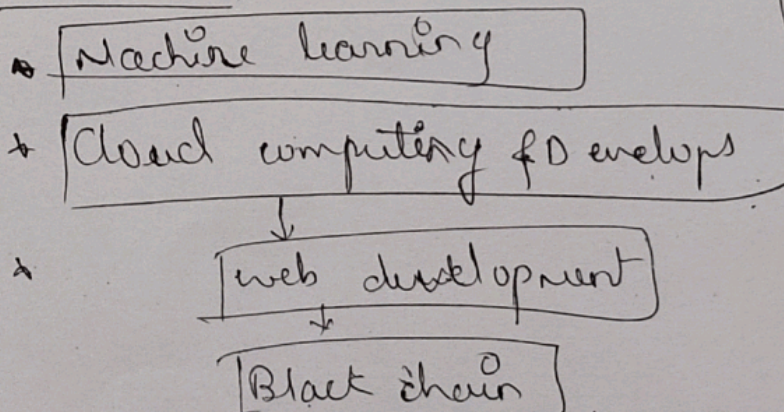 Machine learning
Cloud computing & Develops
web development
Black chain